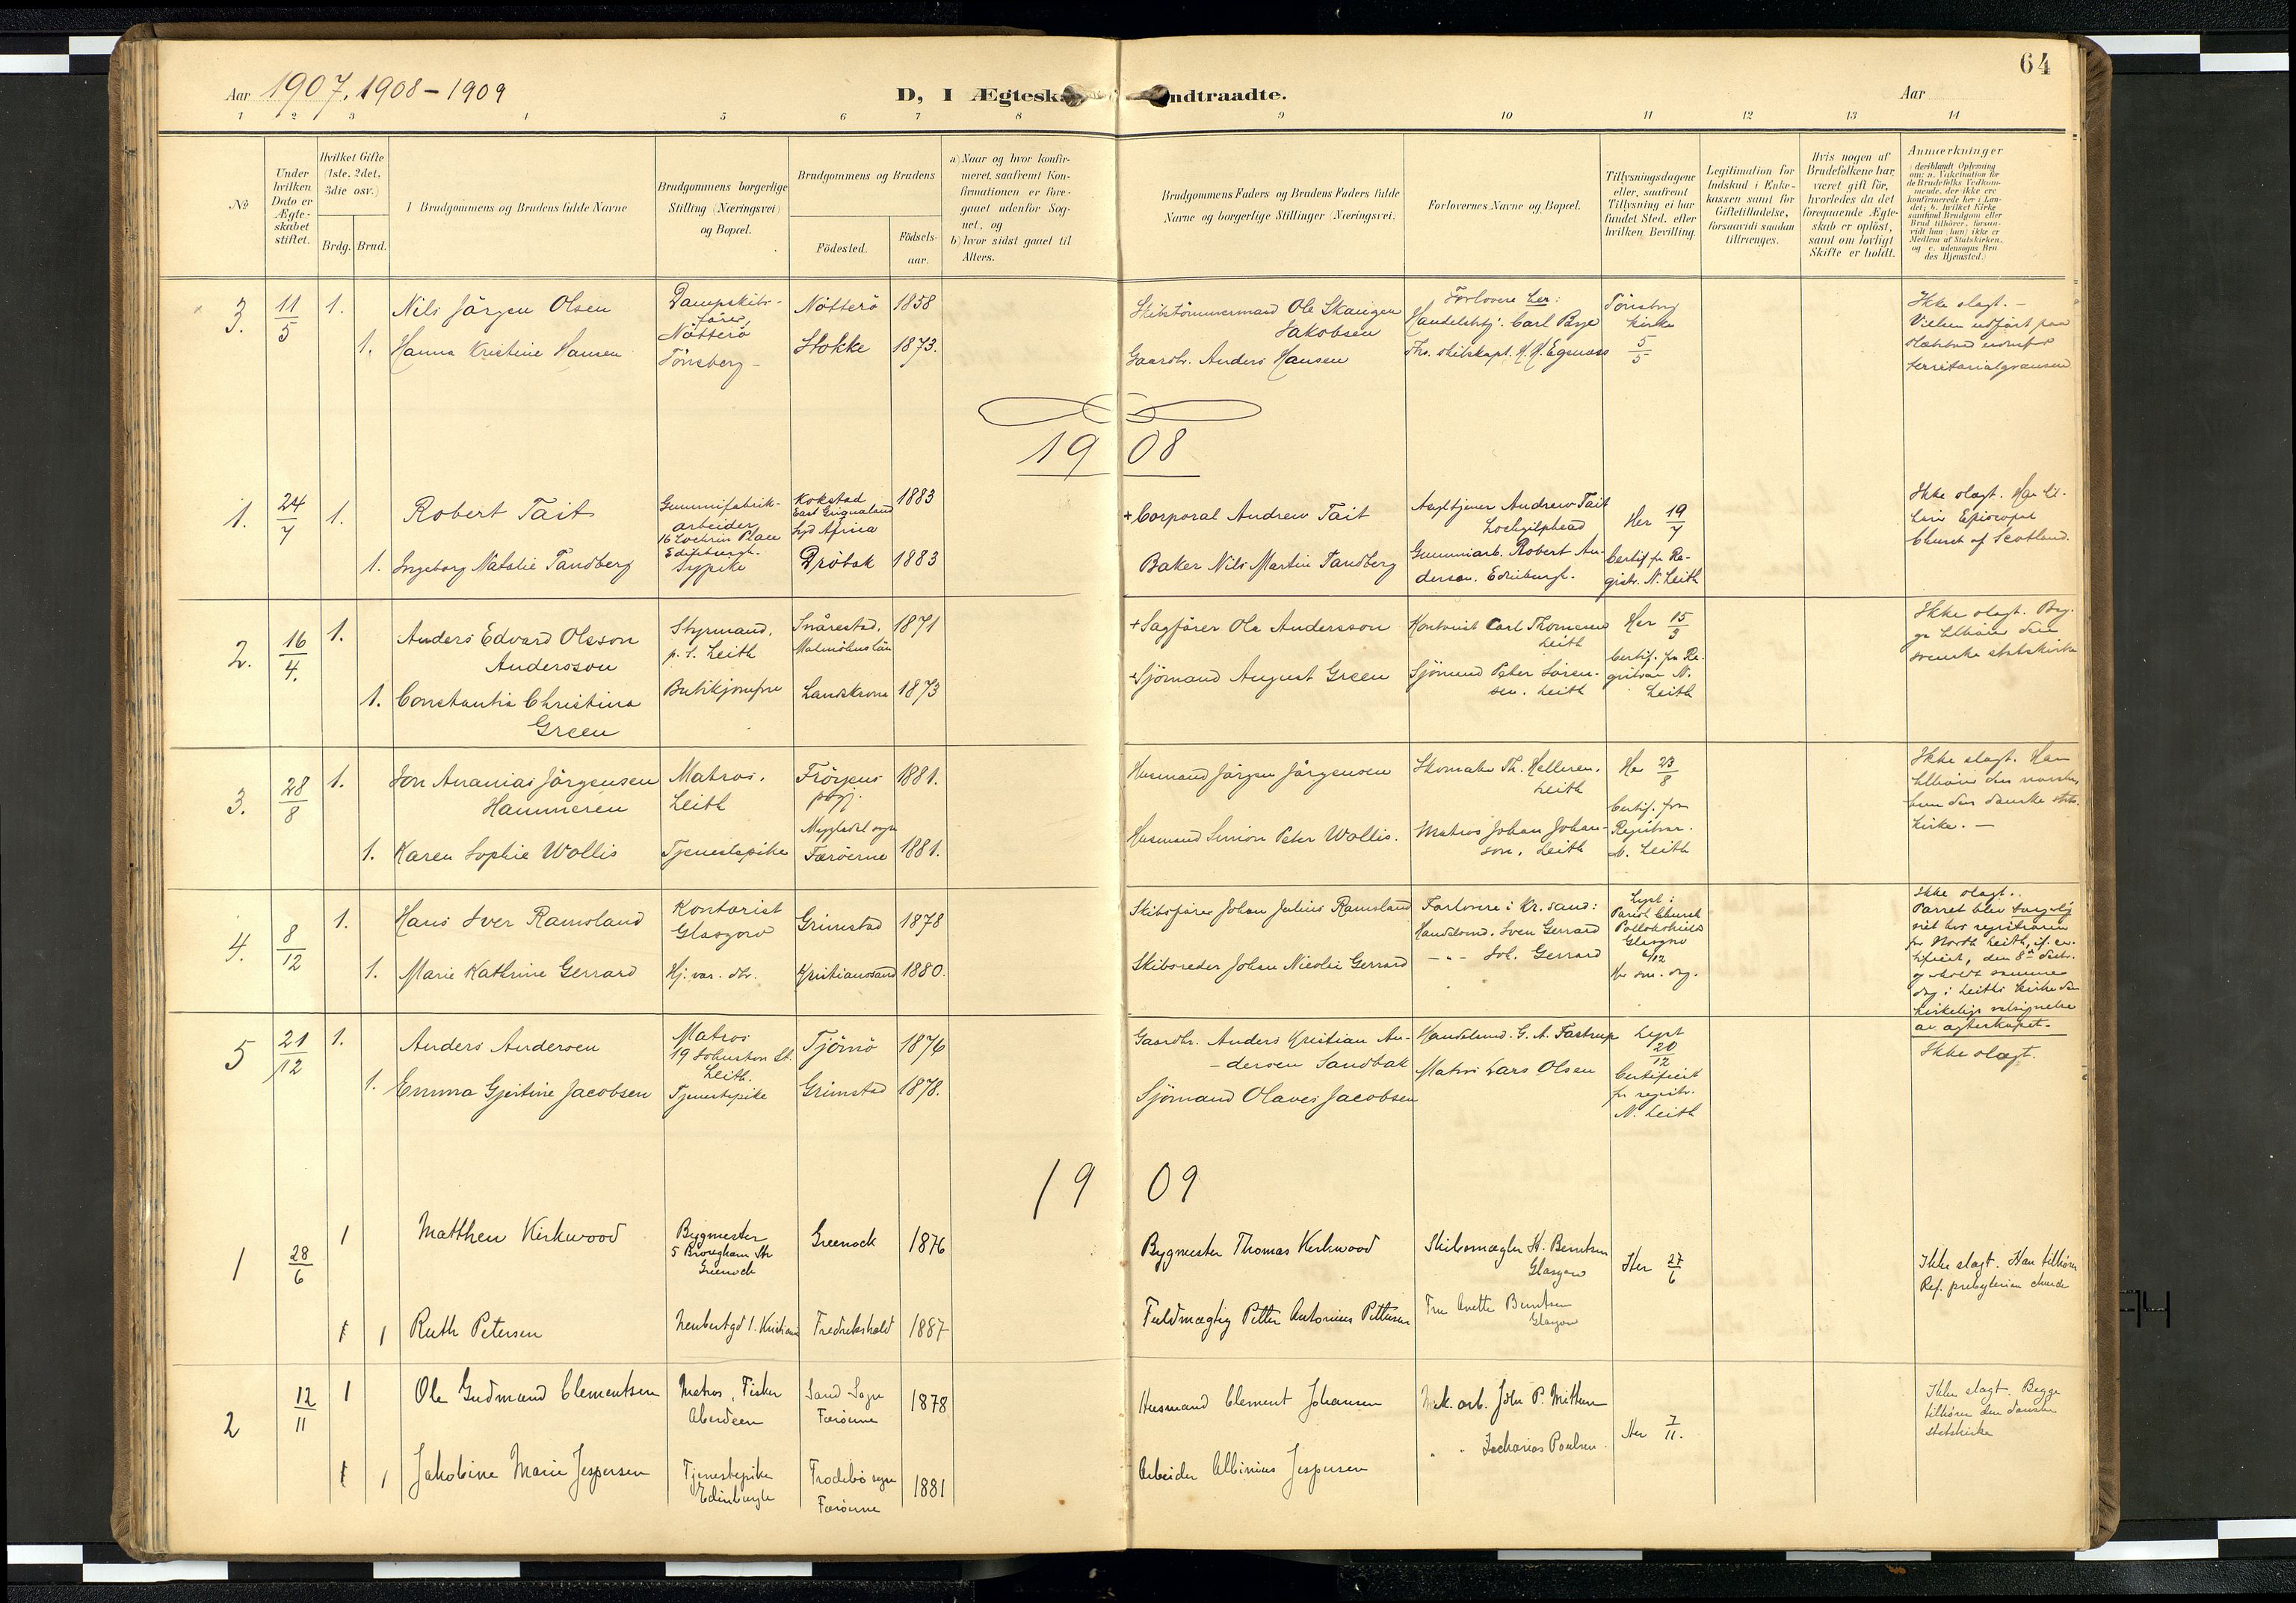 64
Aar 1907. 1908 - 1909
D, I Ægteska ndtraadte.
Aar
1 2 3 4 5 6 7 8 9 10 11 12 13 14
No
Under hvilken Dato er Ægteskabet stiftet.
Hvilket Gifte (1ste, 2det, 3die osv.)
Brdg. Brud.
Brudgommens og Brudens fulde Navne
Brudgommens borgerlige Stilling (Næringsvei) og Bopæl.
Brudgommens og Brudens
Födested.
Födselsaar.
a) Naar og hvor konfirmeret, saafremt Konfirmationen er foregaaet udenfor Sognet, og
b) hvor sidst gaaet til Alters.
Brudgommens Faders og Brudens Faders fulde Navne og borgerlige Stillinger (Næringsvei).
Forlovernes Navne og Bopæl.
Tillysningsdagene eller, saafremt Tillysning ei har fundet Sted, efter hvilken Bevilling.
Legitimation for Indskud i Enkekassen samt for Giftetilladelse, forsaavidt saadan tiltrænges.
Hvis nogen af Brudefolkene har været gift för, hvorledes da det foregaaende Ægteskab er oplöst, samt om lovligt Skifte er holdt.
Anmærkninger
(deriblandt Oplysning om: a. Vakcination for de Brudefolks Vedkommende, der ikke ere konfirmerede her i Landet; b. hvilket Kirkesamfund Brudgom eller Brud tilhører, forsaavidt han (hun) ikke er Medlem af Statskirken, og c. udensogns Brudes Hjemsted.)
3. 11/5 1. Nils Jörgen Olsen
Dampskibsförer, Nötterö
Nötterö 1858
Skibstömmermand Ole Skaugen Jakobsen
Forlovere her:
Handelsbtj. Carl Bye
Tönsberg kirke 5/5
Ikke slagt. -
Vielsen udfört paa
territorialgrænsen
1. Hanna Kristine Hansen
Tönsberg -
Stokke 1873.
Gaardbr. Anders Hansen
1908
1. 24/7 1. Robert Tait
Gummifabrik-
arbeider
16 Lochrin Place
Edinburgh.
Kokstad
East Griqualand
Syd Africa
1883
+ Corporal Andrew Tait
Asyltjener Andrew Tait
Lochgilphead
Her 19/7
Ikke slagt. Han til-
hører Episcopal
Church of Scotland.
1. Ingeborg Natalie Tandberg
Sypike
Dröbak 1883
Baker Nils Martin Tandberg
Gummiarb. Robert An-
derson. Edinburgh.
Certif. fr Re-
gistr. N. Leith
2. 16/4. 1. Anders Edvard Olsson
Andersson
Styrmand,
p. t. Leith
Snårestad.
Malmöhus län
1871
+ Sagförer Ola Andersson
Kontorist Carl Thomsen
Leith
Her 15/3
Ikke slagt. Beg-
ge tilhörer den
svenske statskirke
1. Constantia Christina
Green
Butikjomfru
Landskrona 1873
+ Sjömand August Green
Sjömand Peter Sören-
sen. Leith
Certif. fra Re-
gistrar N.
Leith
3. 28/8 1. Jon Ananias Jörgensen
Hammeren
Matros.
Leith
Fröyens
pgj.
1881.
Husmand Jörgen Jörgensen
Skomaker Th. Helleren.
Leith
Her 23/8
Ikke slagt. Han
tilhörer den norske,
hun den danske stats-
kirke. -
1. Karen Sophie Wollis
Tjenestepike
Færöerne 1881.
Husmand Simon Peter Wollis.
Matros Johan Johan-
son. Leith
Certif. fra
Registrar.
N. Leith
4. 8/12 1. Hans Iver Ramsland
Kontorist
Glasgow
Grimstad 1878
Skibsförer Johan Julius Ramsland
Forlovere i Kr.sand:
Handelsmd. Sven Gerrard
Lyst i
Parish Church
Pollokshields
Glasgow
6/12
Ikke slagt.
Parret blev borgerlig
viet hos registraren
for North Leith, if. cer-
tificat, den 8de
samme
dag i Leiths kirke den
kirkelige velsignelse
av ægteskapet.
1. Marie Kathrine Gerrard
Hj. vær. dtr.
Kristianssand 1880.
Skibsreder Johan Nicolai Gerrard
- " - Joh. Gerrard
5 21/12 1. Anders Andersen
Matros
19 Johnston St.
Leith.
Tjömö 1876
Gaardbr. Anders Kristian An-
dersen Sandbak
Handelsmd. G. A. Fastrup
Lyst
20/12
Ikke slagt.
1. Emma Gjertine Jacobsen
Tjenestepike
Grimstad 1878.
Sjömand Olaves Jacobsen
Matros Lars Olsen
Certificat
fr registr.
N. Leith
1909
1 28/6 1 Matthew Kirkwood
Bygmester
Greenock
Greenock 1876
Bygmester Thomas Kirkwood
Skibsmægler H. Berntsen
Glasgow
Her 27/6
Ikke slagt. Han tilhører
Ref. presbyterian church
1 1 Ruth Petersen
Fredrikshald 1887
Fuldmægtig Petter Antonius Pettersen
Fru Anette Berntsen
Glasgow
2 12/11 1 Ole Gudmund Clementsen
Matros, Fisker
Aberdeen
Sand Sogn
Færöerne
1878
Husmand Clement Johansen
Mek. arb. John P.
Her 7/11.
Ikke slagt. Begge
tilhører den danske
statskirke
1 1 Jakobine Marie Jespersen
Tjenestepike
Edinburgh
Frodebö sogn
Færöerne
1881
Arbeider Albinius Jespersen
" " Zacharias Poulsen